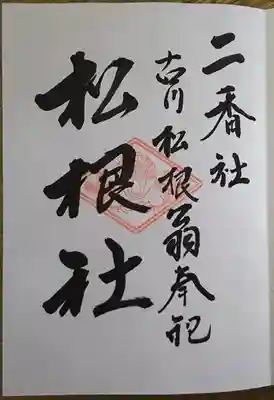 二番社
古川松根翁奉祀
松根社